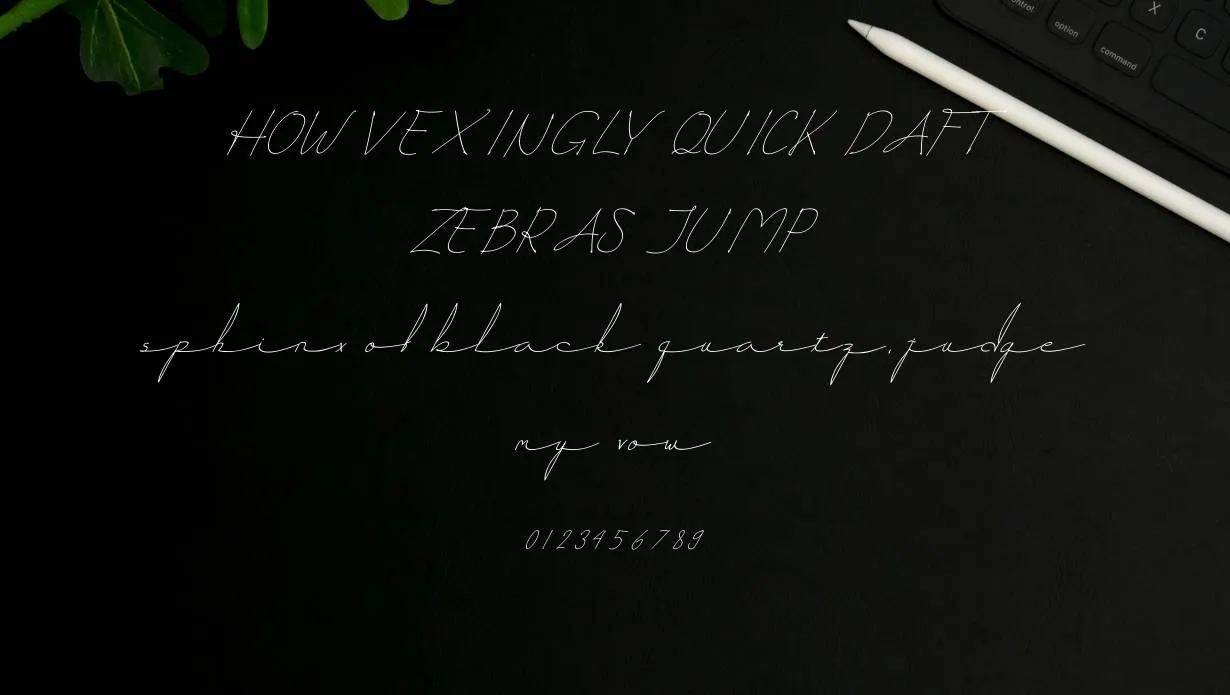 control
option
command
X
C
HOW VEXINGLY QUICK DAFT
ZEBRAS JUMP
sphinx of black quartz, judge
my vow
0123456789